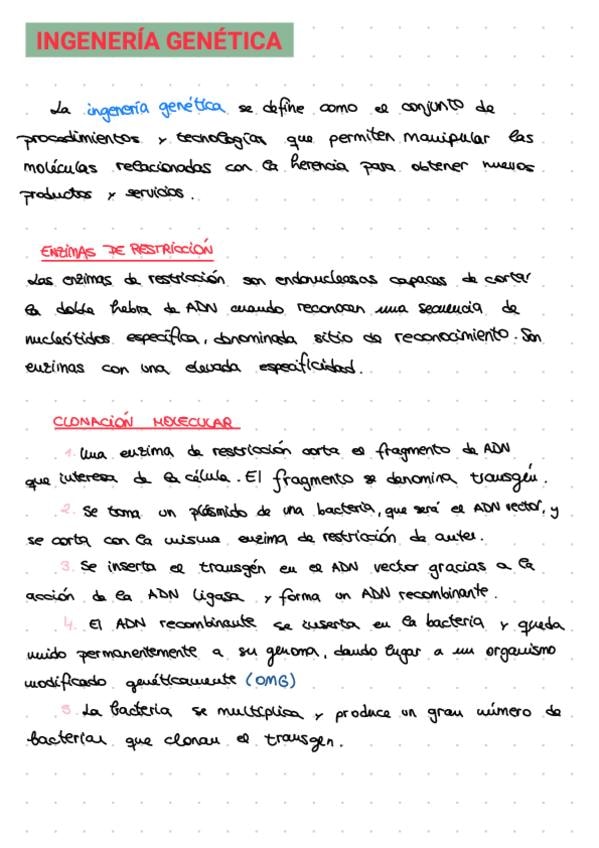 INGENERÍA GENÉTICA
La ingenería genética se define como el conjunto de
procedimientos y tecnologías que permiten manipular las
moléculas relacionadas con la herencia para obtener nuevos
productos y servicios.
ENZIMAS DE RESTRICCIÓN
Las enzimas de restricción son endonucleasas capaces de cortar
la doble hebra de ADN cuando reconocen una secuencia de
nucleótidos específica, denominada sitio de reconocimiento. Son
enzimas con una elevada especificidad.
CLONACIÓN MOLECULAR
1. Una enzima de restricción corta el fragmento de ADN
que interesa de la célula. El fragmento se denomina transgén.
2. Se toma un plásmido de una bacteria, que será el ADN vector, y
se corta con la misma enzima de restricción de antes.
3. Se inserta el transgén en el ADN vector gracias a la
acción de la ADN ligasa y forma un ADN recombinante.
4. El ADN recombinante se inserta en la bacteria y queda
unido permanentemente a su genoma, dando lugar a un organismo
modificado genéticamente (OMG)
5. La bacteria se multiplica y produce un gran número de
bacterias que clonan el transgen.